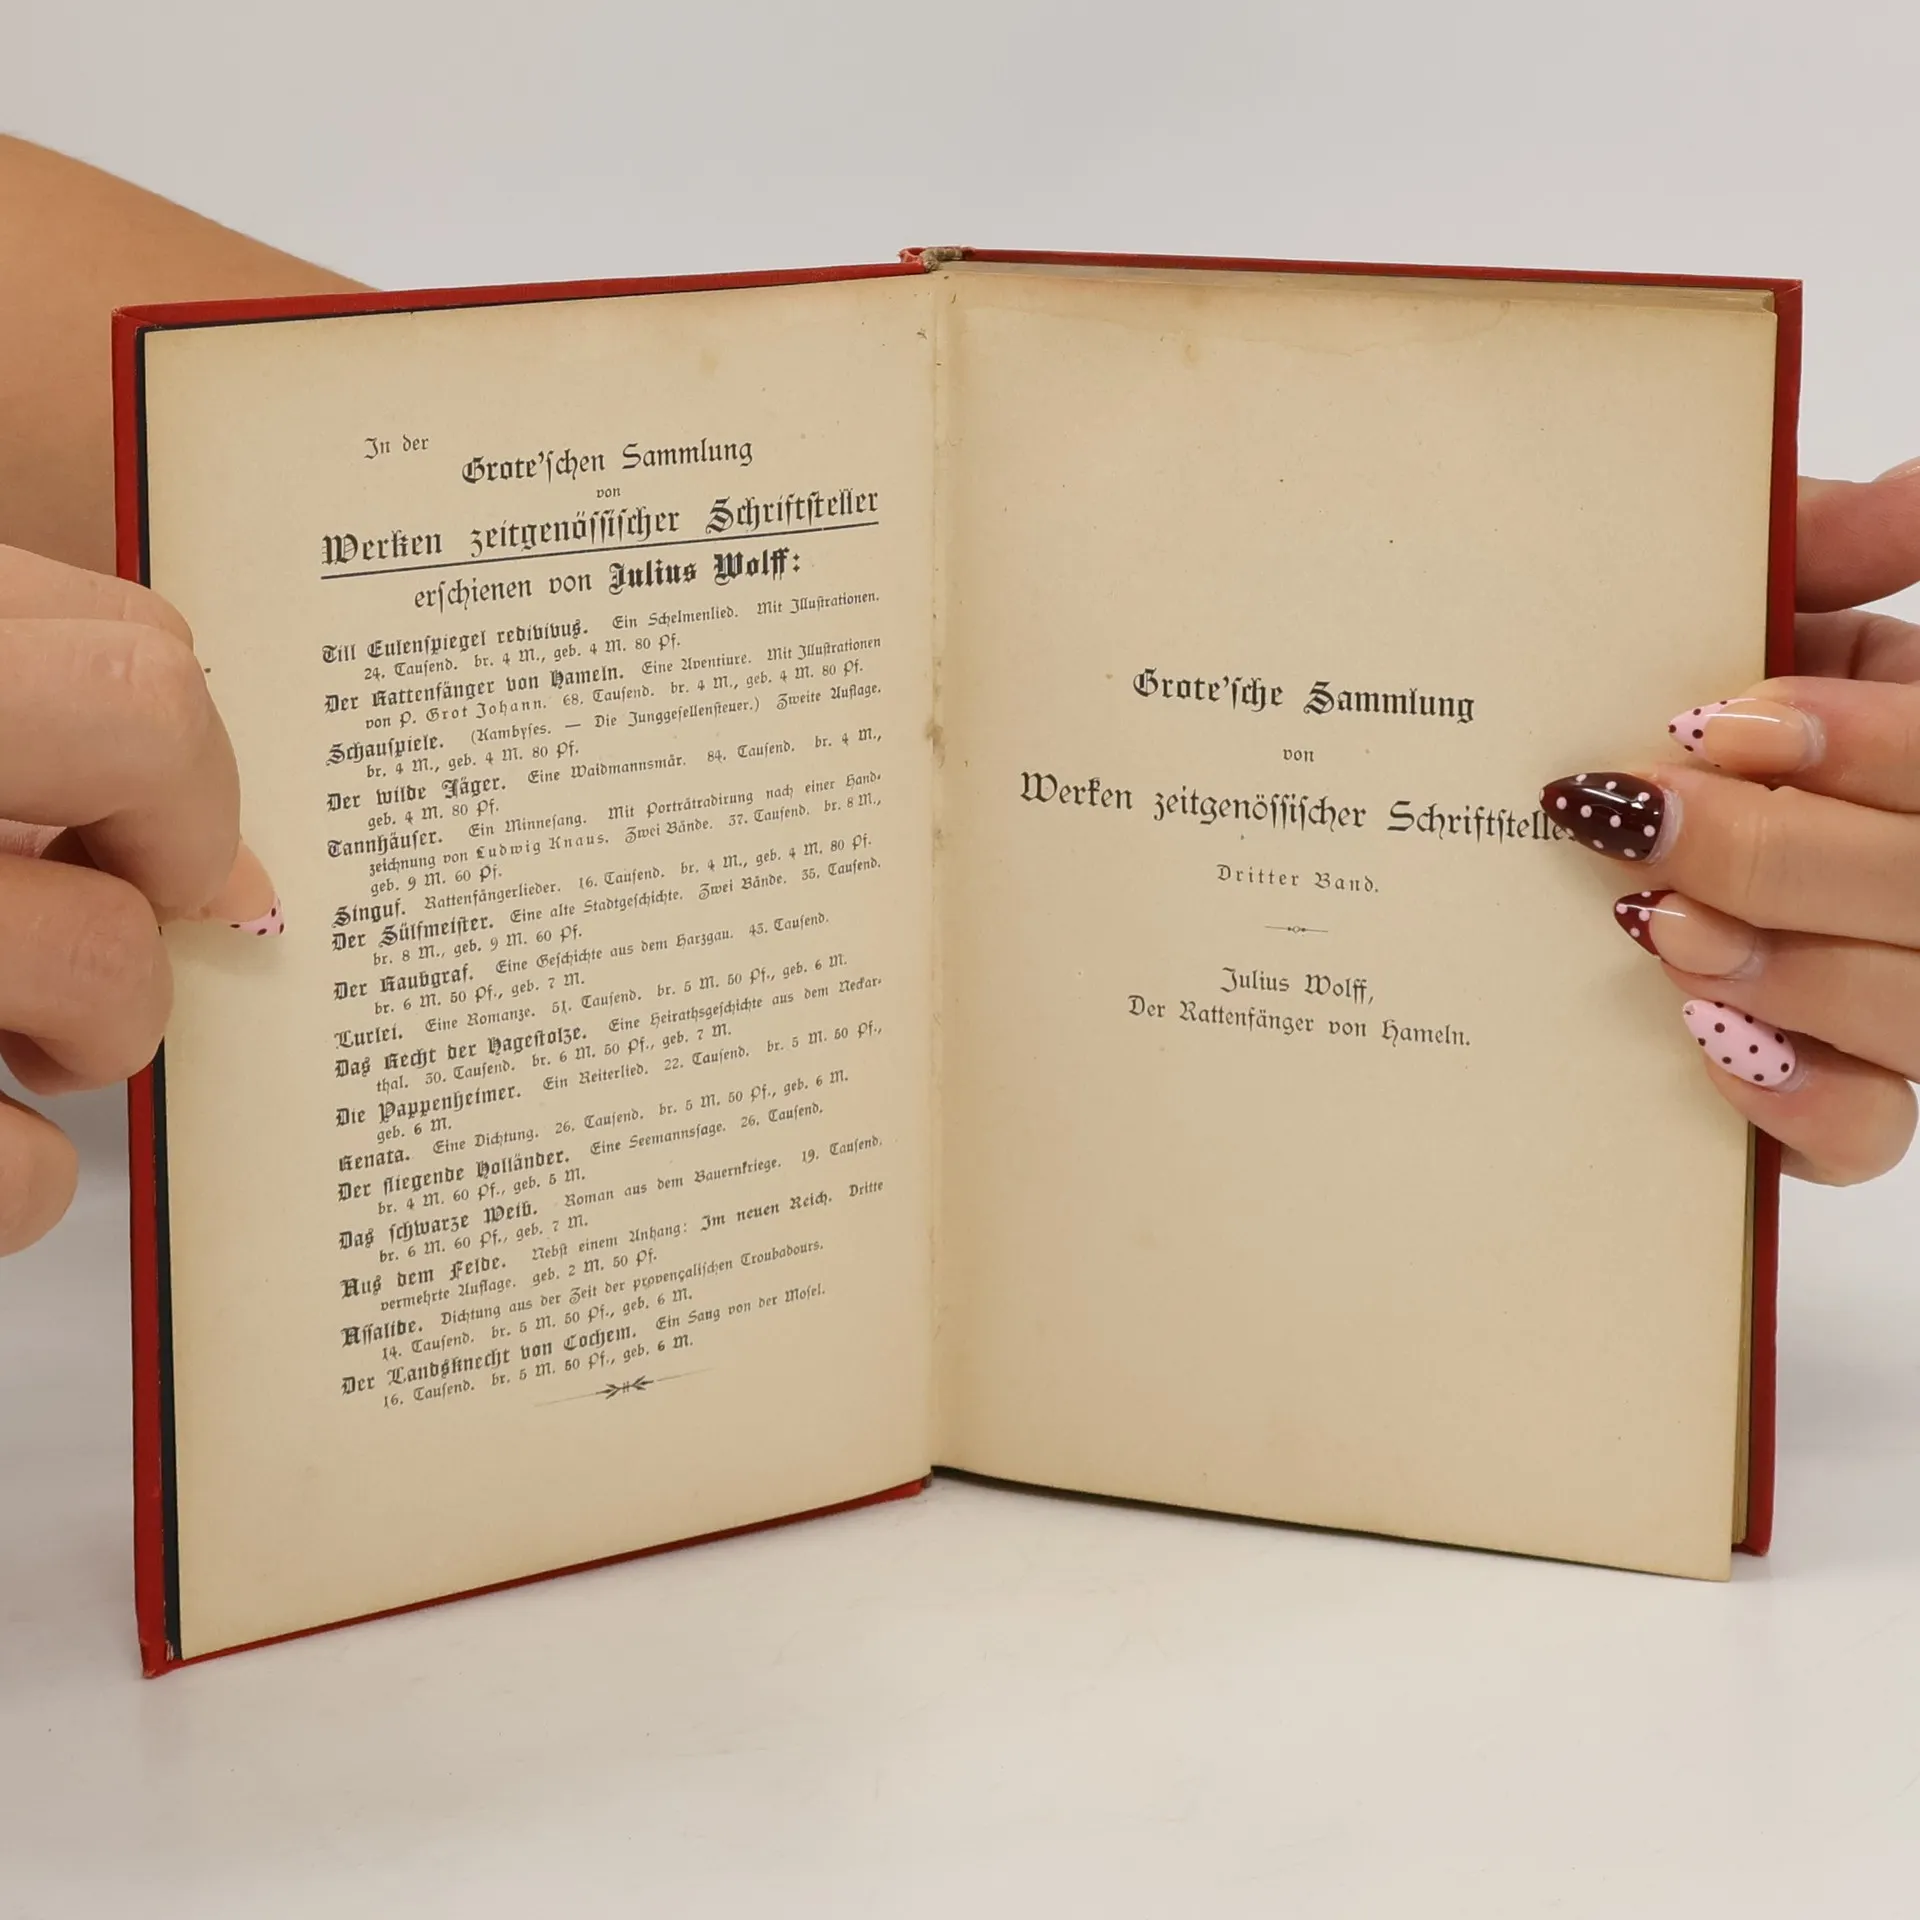 In der
Grote'ſchen Sammlung
von
Werken zeitgenöſſiſcher Schriftſteller
erſchienen von Julius Wolff:
Till Eulenſpiegel redivivus. Ein Schelmenlied. Mit Illuſtrationen.
24. Tauſend. br. 4 M., geb. 4 M. 80 Pf.
Der Rattenfänger von Hameln. Eine Aventiure. Mit Illuſtrationen
von P. Grot Johann. 68. Tauſend. br. 4 M., geb. 4 M. 80 Pf.
Schauſpiele. (Kambyſes. — Die Junggeſellenſteuer.) Zweite Auflage.
br. 4 M., geb. 4 M. 80 Pf.
Der wilde Jäger. Eine Waidmannsmär. 84. Tauſend. br. 4 M.,
geb. 4 M. 80 Pf.
Tannhäuſer. Ein Minneſang. Mit Porträtradirung nach einer Hand-
zeichnung von Ludwig Knaus. Zwei Bände. 37. Tauſend. br. 8 M.,
geb. 9 M. 60 Pf.
Singuf. Rattenfängerlieder. 16. Tauſend. br. 4 M., geb. 4 M. 80 Pf.
Der Sülfmeiſter. Eine alte Stadtgeſchichte. Zwei Bände. 35. Tauſend.
br. 8 M., geb. 9 M. 60 Pf.
Der Raubgraf. Eine Geſchichte aus dem Harzgau. 43. Tauſend.
br. 6 M. 50 Pf., geb. 7 M.
Lurlei. Eine Romanze. 51. Tauſend. br. 5 M. 50 Pf., geb. 6 M.
Das Recht der Hageſtolze. Eine Heirathsgeſchichte aus dem Neckar-
thal. 30. Tauſend. br. 6 M. 50 Pf., geb. 7 M.
Die Pappenheimer. Ein Reiterlied. 22. Tauſend. br. 5 M. 50 Pf.,
geb. 6 M.
Renata. Eine Dichtung. 26. Tauſend. br. 5 M. 50 Pf., geb. 6 M.
Der fliegende Holländer. Eine Seemannsſage. 26. Tauſend.
br. 4 M. 60 Pf., geb. 5 M.
Das ſchwarze Weib. Roman aus dem Bauernkriege. 19. Tauſend.
br. 6 M. 60 Pf., geb. 7 M.
Aus dem Felde. Nebſt einem Anhang: Im neuen Reich. Dritte
vermehrte Auflage. geb. 2 M. 50 Pf.
Aſſalide. Dichtung aus der Zeit der provençaliſchen Troubadours.
14. Tauſend. br. 5 M. 50 Pf., geb. 6 M.
Der Landsknecht von Cochem. Ein Sang von der Moſel.
16. Tauſend. br. 5 M. 50 Pf., geb. 6 M.
Grote'ſche Sammlung
von
Werken zeitgenöſſiſcher Schriftſteller
Dritter Band.
Julius Wolff,
Der Rattenfänger von Hameln.